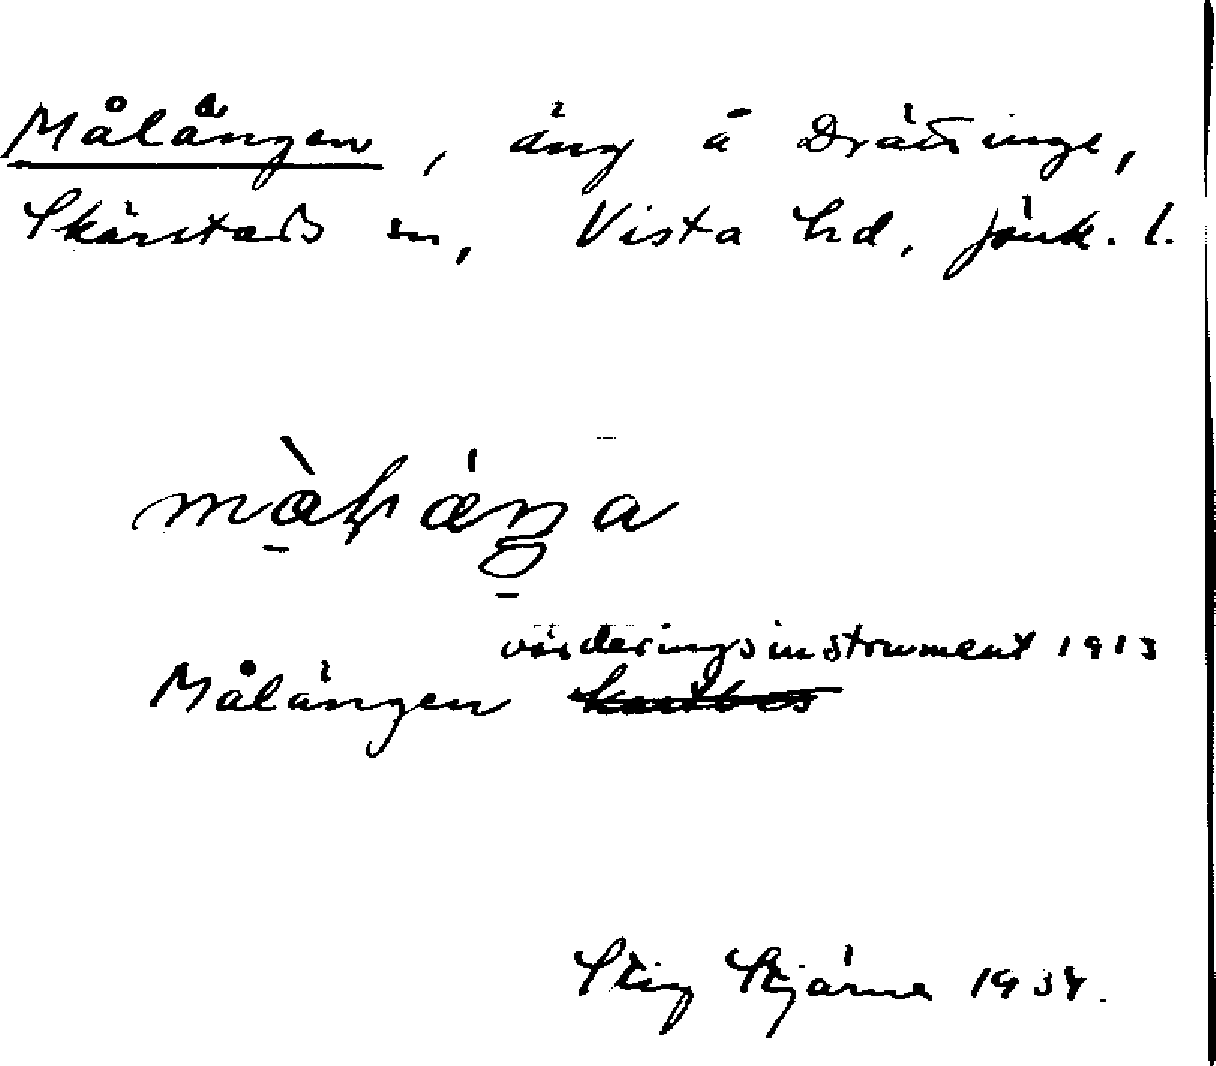 Målängen, äng å Drättinge,
Skärstads sn, Vista hd, Jönk. l.
värderingsinstrument 1913
Målängen
Stig Stjärne 1934.